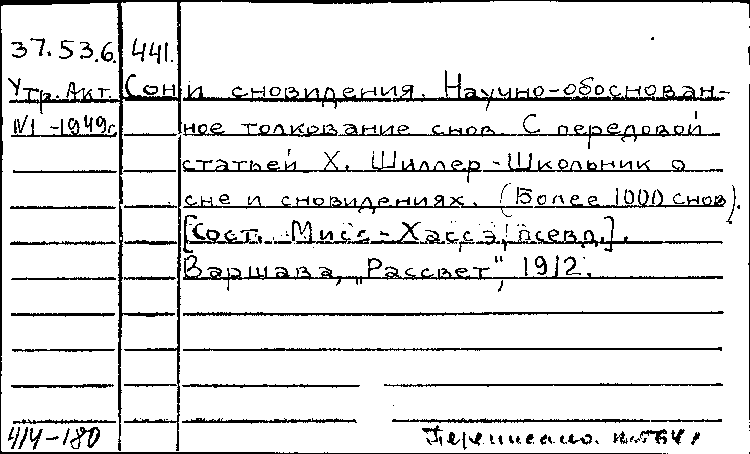 37.53.6. 441.
Утр. Акт. Сон и сновидения. Научно-обоснован-
№1 -1949г ное толкование снов. С передовой
статьей Х. Шиллер-Школьник о
сне и сновидениях. (Более 1000 снов).
[Сост. Мисс-Хассэ, псевд.].
Варшава, „Рассвет", 1912.
414-180 Переписано.